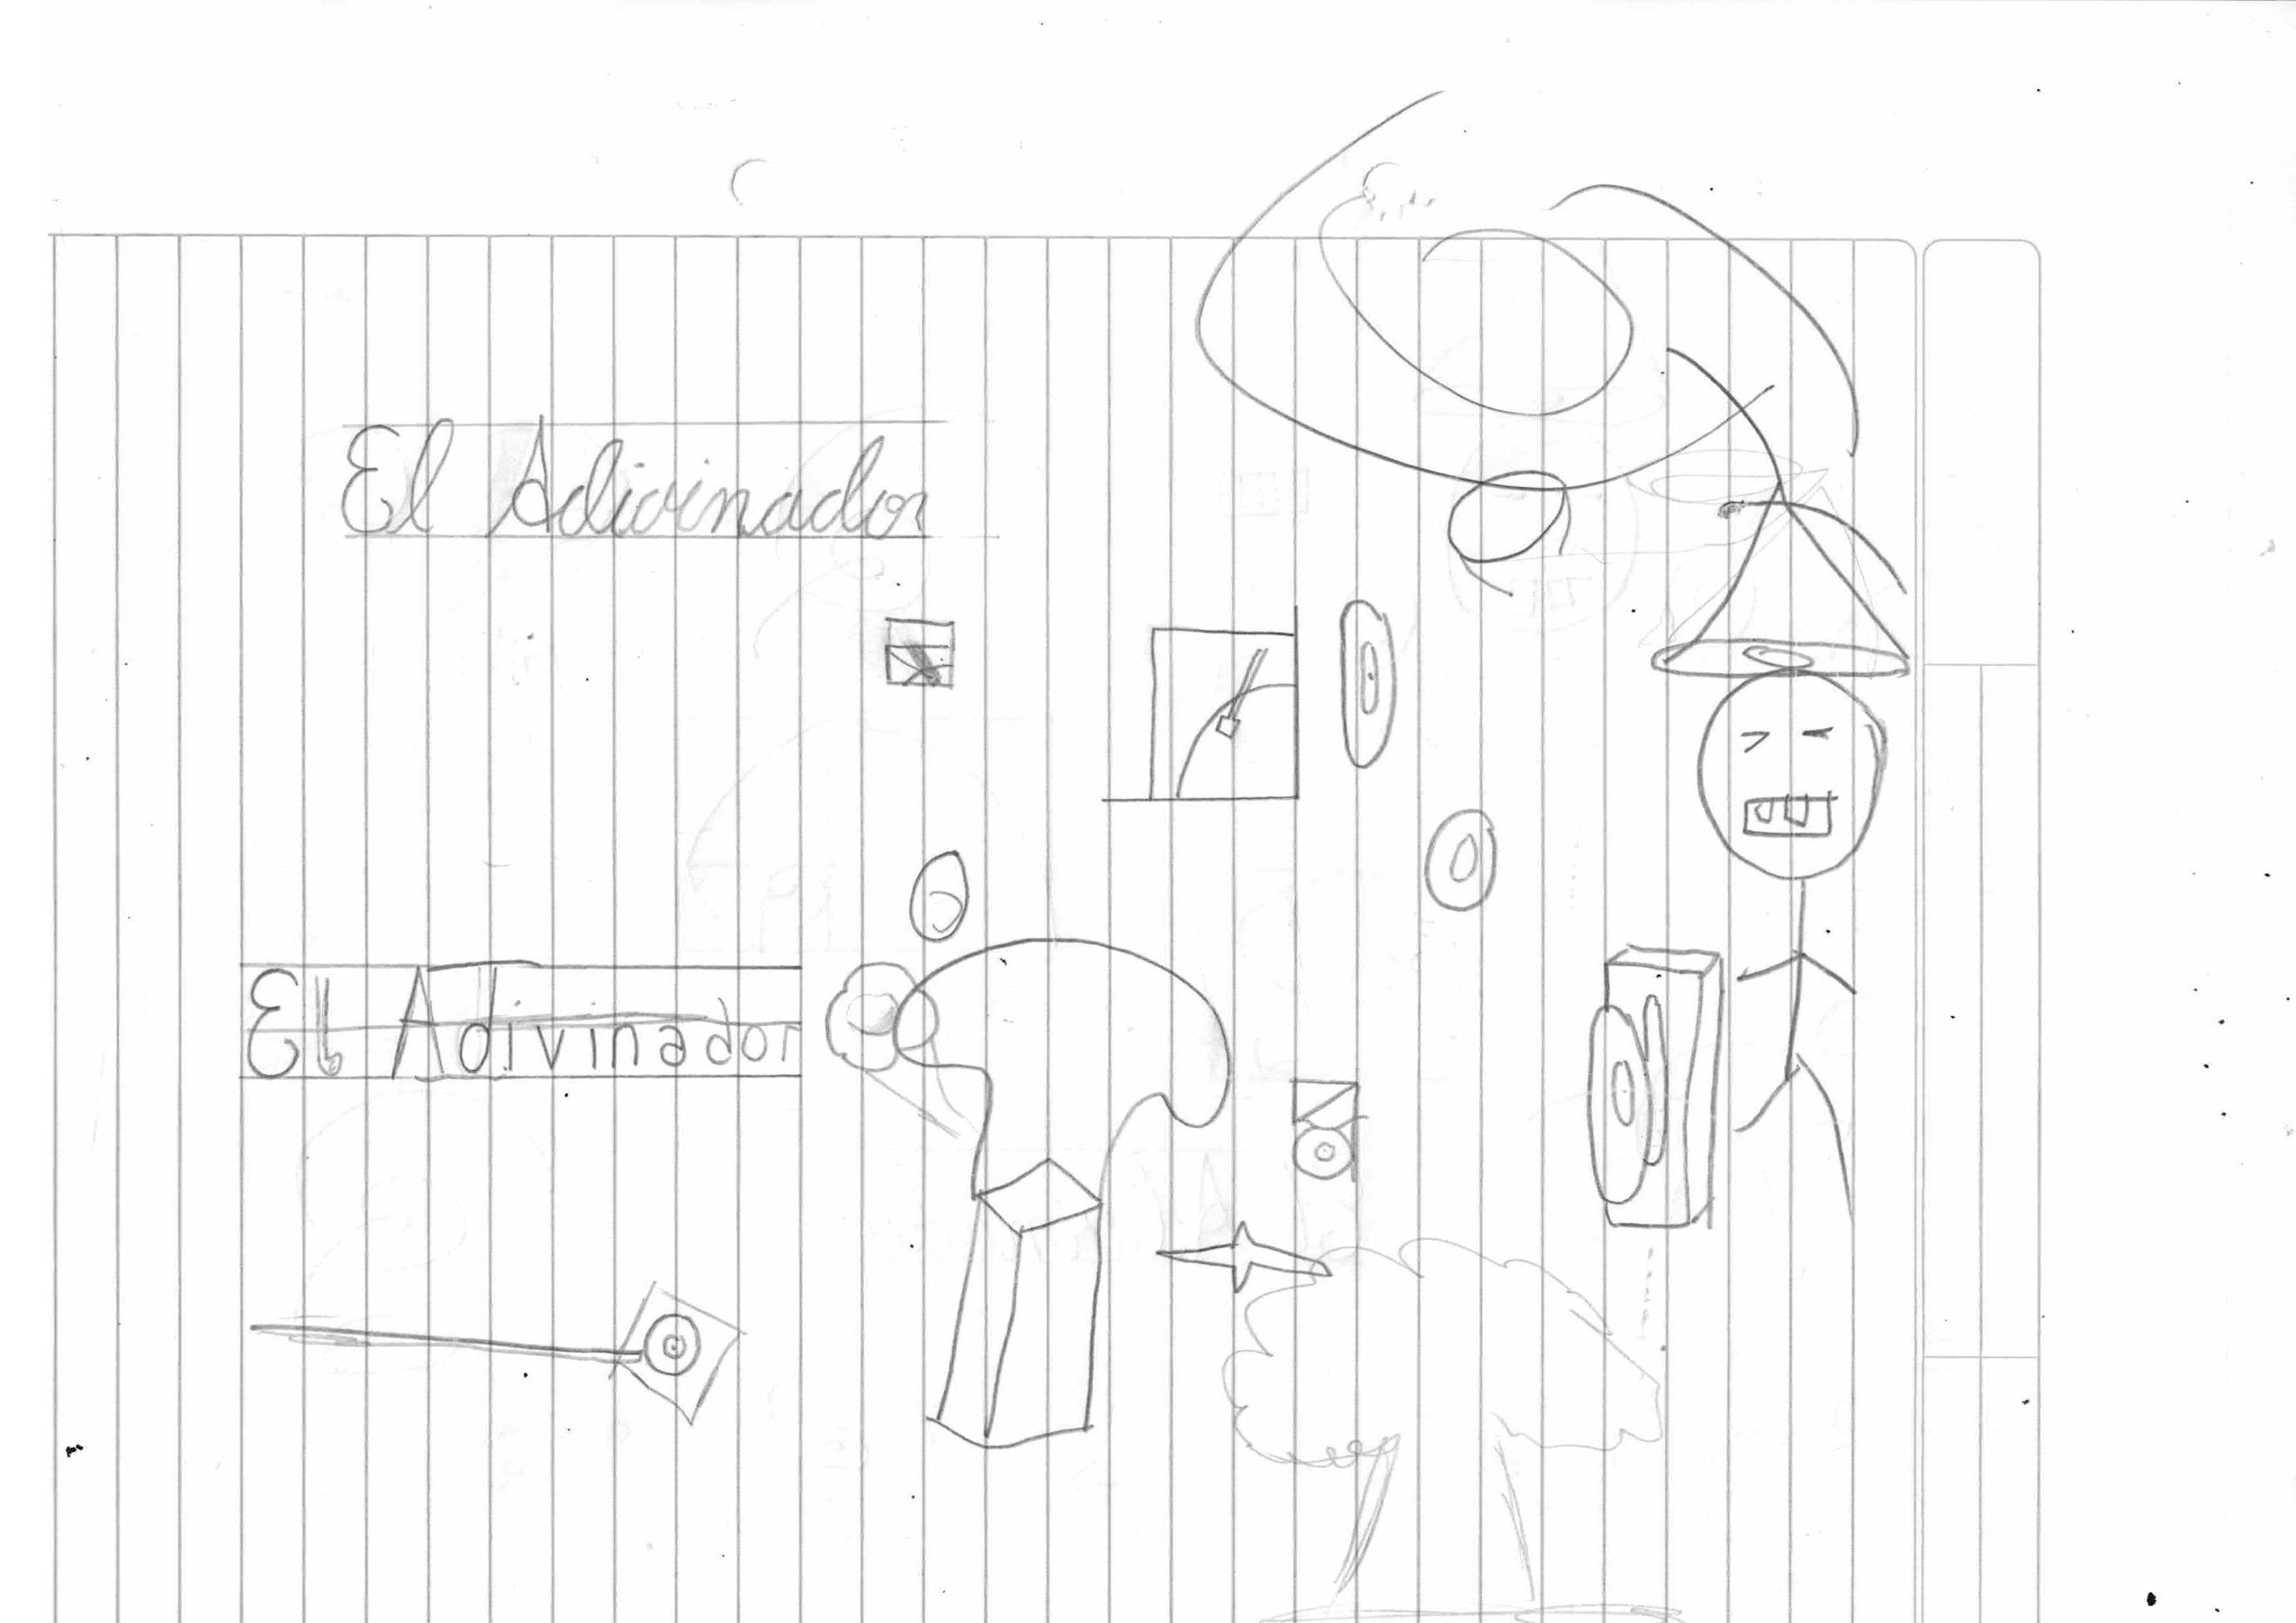 El Adivinador
El Adivinador